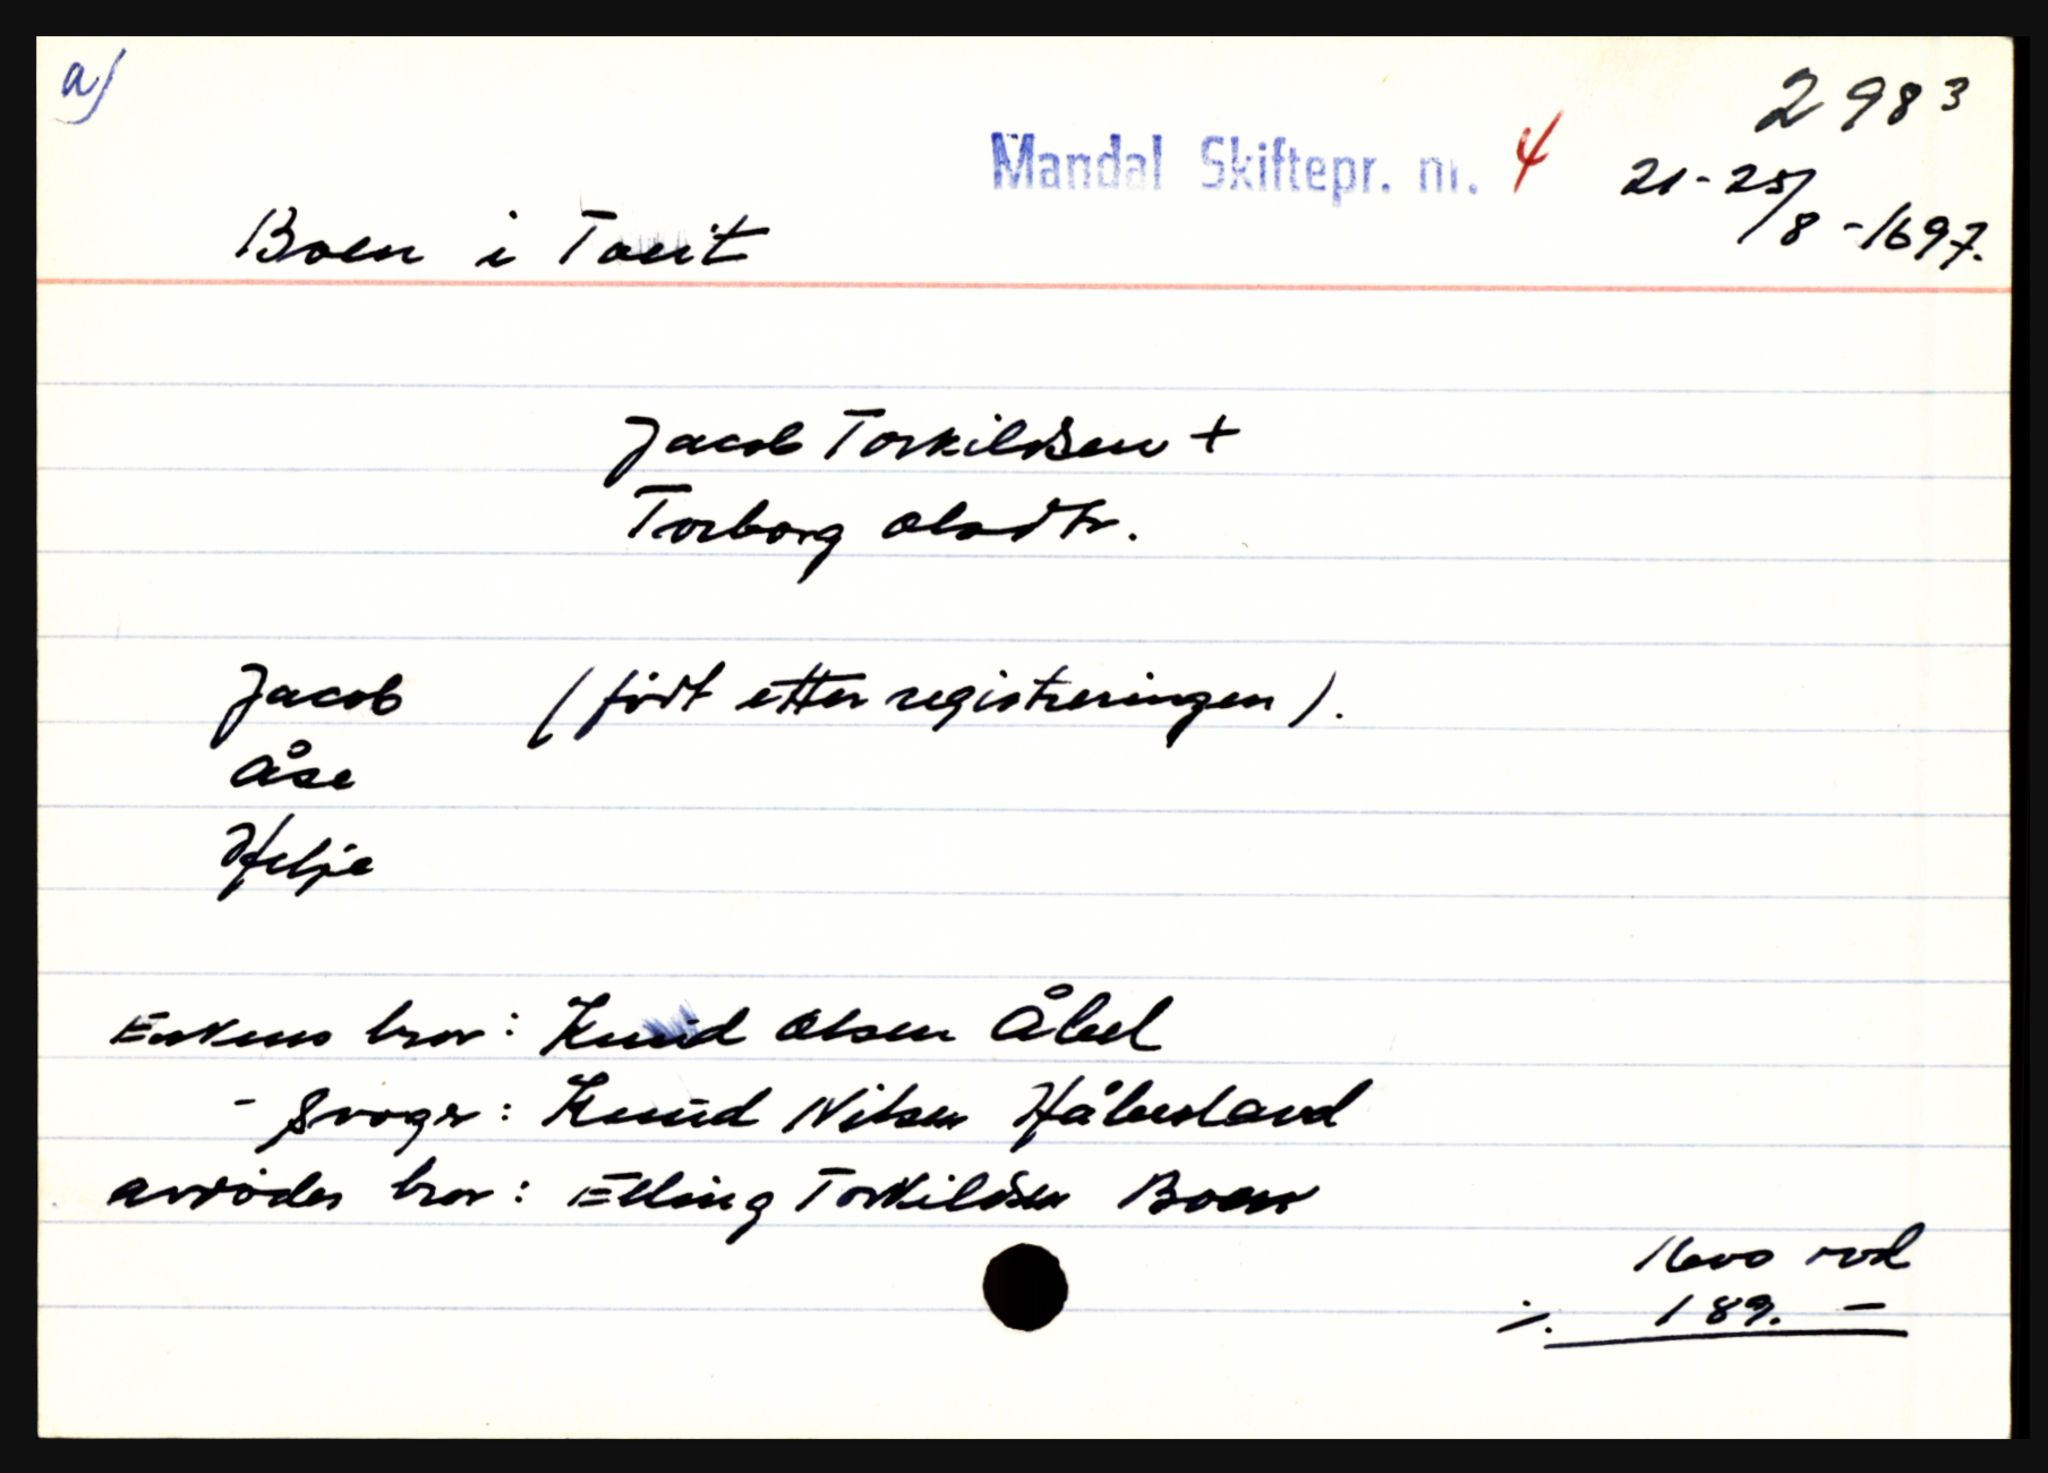 a)
2983
Mandal Skiftepr. nr. 4
21-25/8 -1697.
Boen i Tveit
Jacob Torkildsen +
Torborg Olsdtr.
Jacob (född etter registreringen).
Åse
Helje
Enkens bror: Knud Olsen Ålel
- svoger: Knud Nilsen Håbesland
avdødes bror: Elling Torkildsen Boen
1600 rd
÷. 189. -